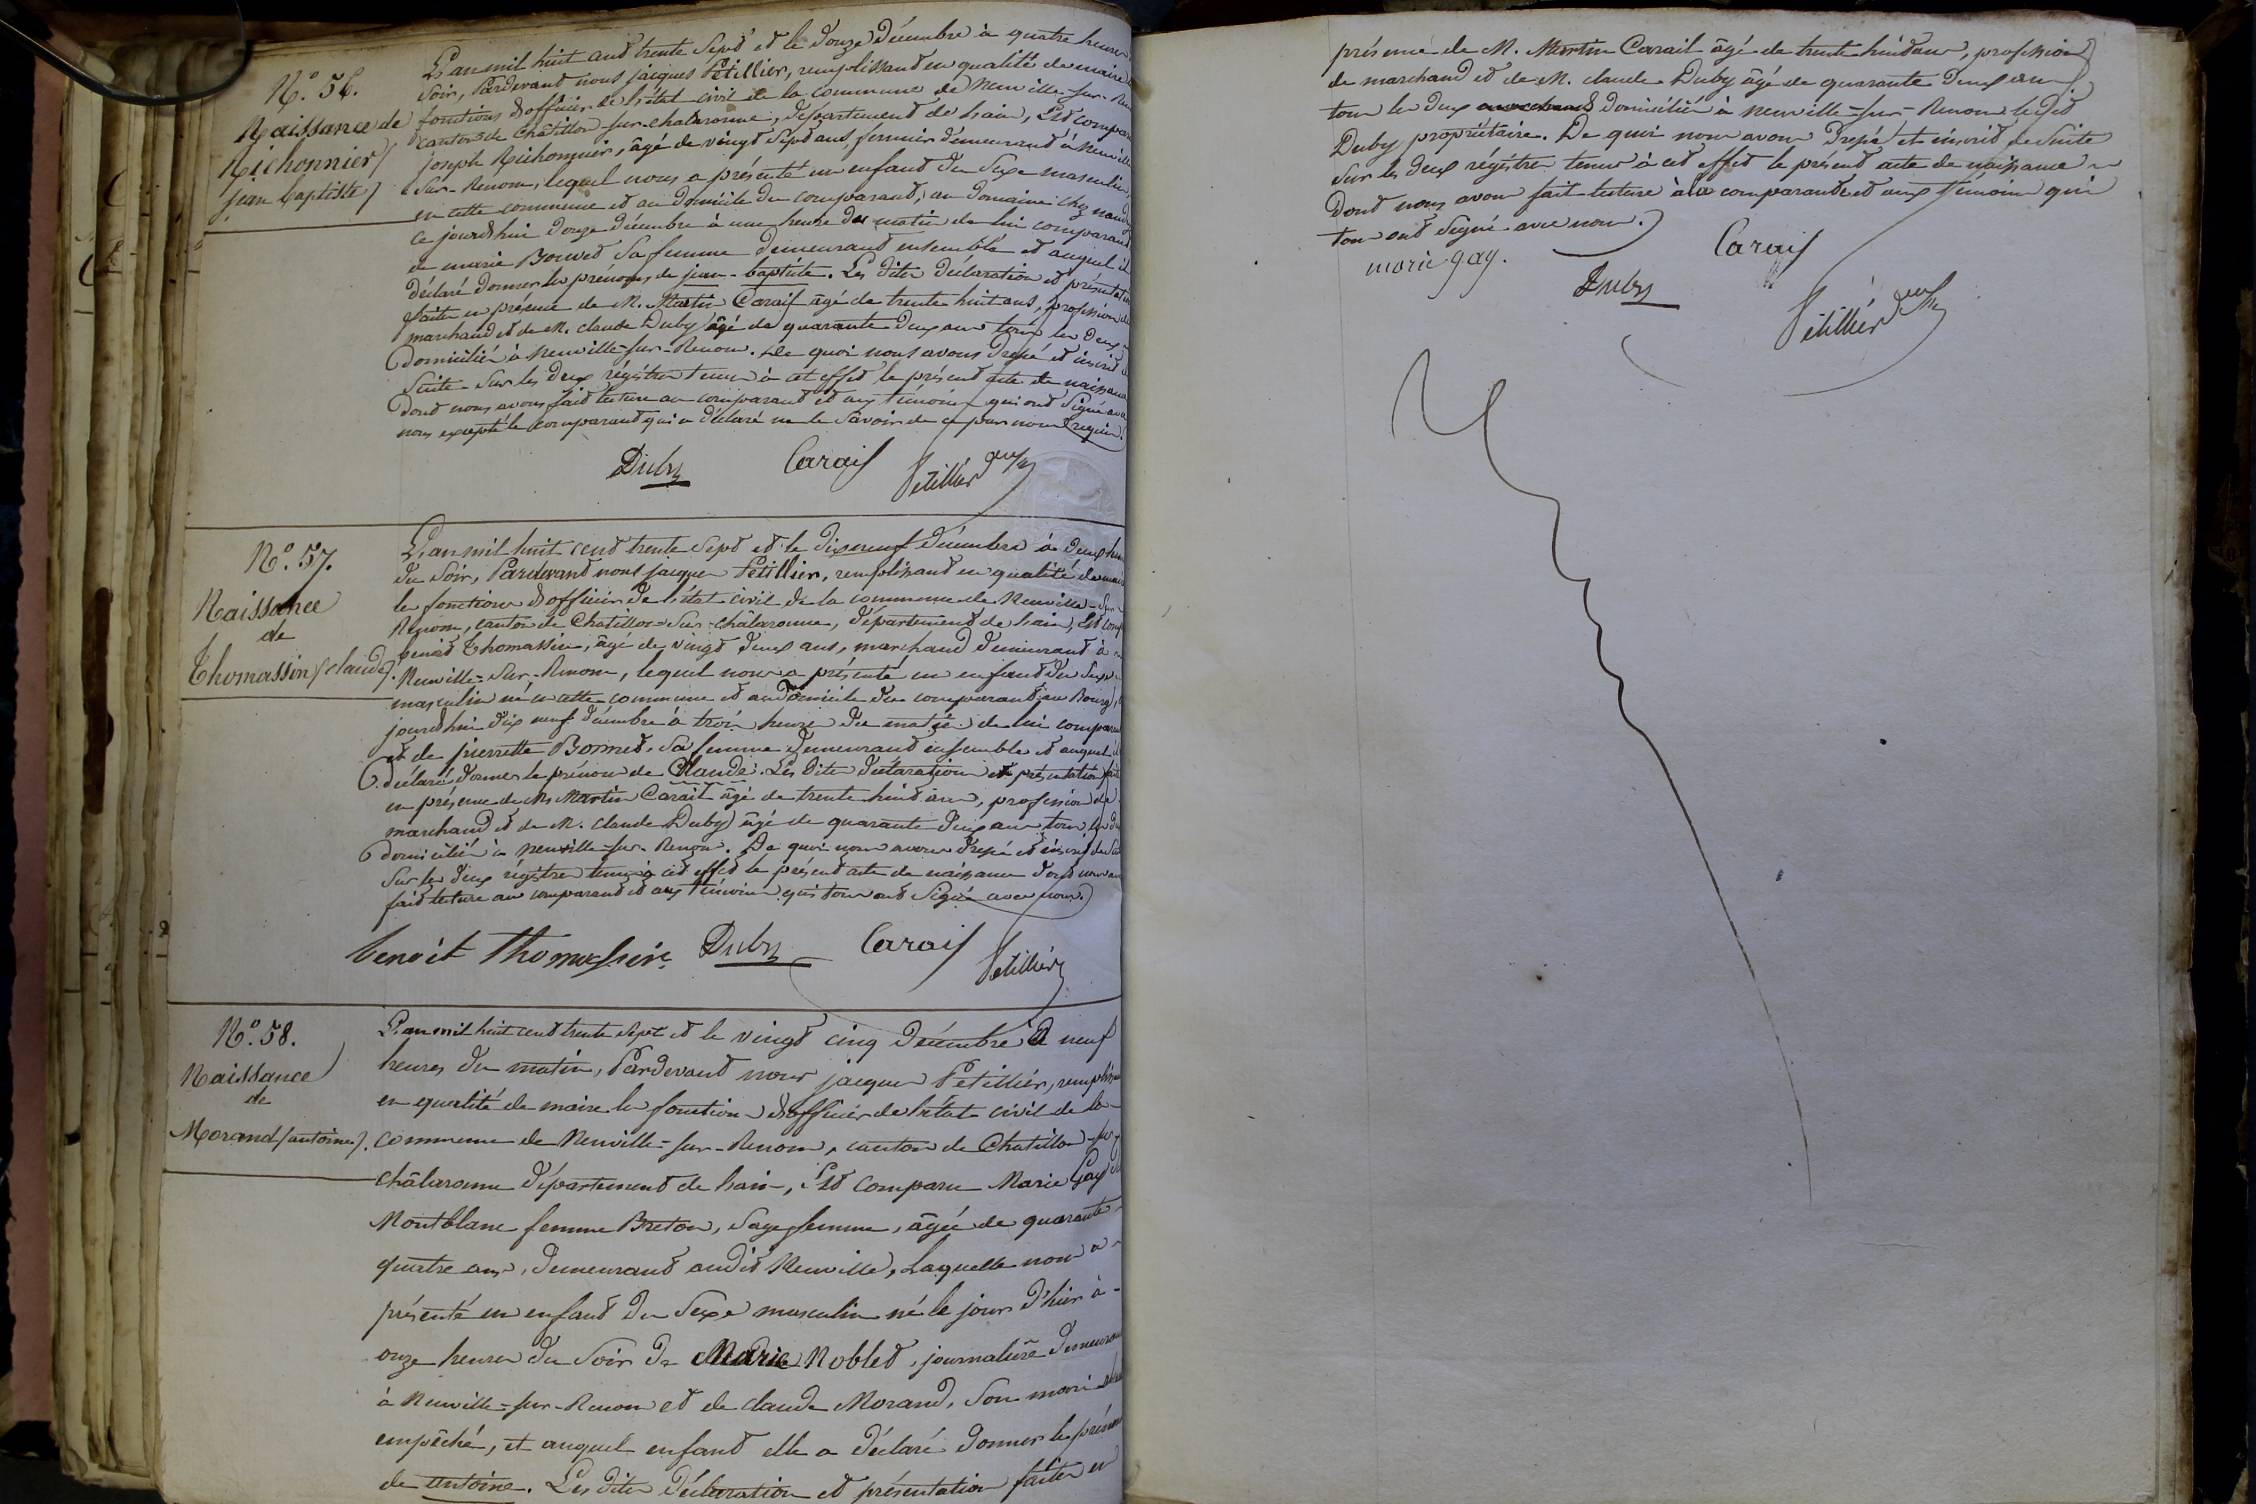 N.° 56.
Naissance de
Richonnier
jean baptiste
L'an mil huit cent trente Sept et le douze Décembre à quatre heures
soir, Pardevant nous jacques Petillier, remplissant en qualité de maire
fonctions d'officier de l'état civil de la commune de Neuville-sur-
canton de Châtillon-sur-chalaronne, département de l'ain, Est compar
joseph Richonnier, âgé de vingt Sept ans, fermier demeurant à Neuville
Sur-Renom, lequel nous a présenté un enfant du Sexe masculin
en cette commune et au domicile du comparant, au domaine chez
ce jourd'hui douze décembre à une heure du matin de lui comparant
de marie Bouvet Sa femme demeurant ensemble et auquel il
déclaré donner les prénoms de jean-baptiste. Les dites déclaration et présentation
faites en présence de M. Martin Carait âgé de trente huit ans, profession de
marchand et de M. claude Duby âgé de quarante deux ans tous les deux
domiciliés à Neuville-sur-Renom. De quoi nous avons Dressé et inscrit de
Suite Sur les deux régistres tenus à cet effet le présent acte de naissance
Dont nous avons fait lecture au comparant et aux témoins qui ont Signé avec
nous excepté le comparant qui a déclaré ne le Savoir de ce par nous requis.
Duby Carait Petillier
N.° 57.
Naissance
de
Thomassin (claude).
L'an mil huit cent trente Sept et le dix neuf décembre à deux heures
du Soir, Pardevant nous jacques Petillier, remplissant en qualité de maire
les fonctions d'officier de l'état civil de la commune de Neuville-Sur-
Renom, canton de Chatillon-Sur-châlaronne, département de l'ain, Est comp
benoit Thomassin, âgé de vingt deux ans, marchand demeurant à
Neuville-Sur-Renom, lequel nous a présenté un enfant du Sexe
masculin né en cette commune et au domicile du comparant, au Bourg,
jourd'hui dix neuf décembre à trois heures du matin de lui comparant
et de pierrette Bonnet, Sa femme demeurant ensemble et auquel il
déclaré donner le prénom de Claude. Les dites déclaration et présentation faites
en présence de M. Martin Carait âgé de trente huit ans, profession de
marchand et de M. claude Duby âgé de quarante deux ans tous les deux
domiciliés à Neuville-sur-Renom. De quoi nous avons dressé et inscrit de Suite
Sur les deux régistres tenus à cet effet le présent acte de naissance dont nous avons
fait lecture au comparant et aux témoins qui tous ont Signé avec nous.
benoit Thomassin Duby Carait Petillier
N.° 58.
Naissance
de
Morand (antoine).
L'an mil huit cent trente sept et le vingt cinq Décembre à neuf
heures du matin, Pardevant nous jacques Petillier, remplissant
en qualité de maire les fonctions d'officier de l'état civil de la
commune de Neuville-sur-Renom, canton de Chatillon-sur-
châlaronne département de l'ain, Est comparu Marie Gay
Montblanc femme Breton, Sage femme, âgée de quarante
quatre ans, demeurant audit Neuville, Laquelle nous a
présenté un enfant du Sexe masculin né le jour d'hier à
onze heures du Soir de Marie Noblet, journalière demeurant
à Neuville-sur-Renom et de claude Morand, Son mari
empêché, et auquel enfant elle a déclaré donner le prénom
de antoine. Les dites déclaration et présentation faites en
présence de M. Martin Carait âgé de trente huit ans, profession
de marchand et de M. claude Duby âgé de quarante deux ans
tous les deux domiciliés à Neuville-sur-Renom ledit
Duby propriétaire. De quoi nous avons Dressé et inscrit de Suite
Sur les deux régistres tenus à cet effet le présent acte de naissance
Dont nous avons fait lecture à la comparante et aux témoins qui
tous ont Signé avec nous.
marie gay. Duby Carait Petillier